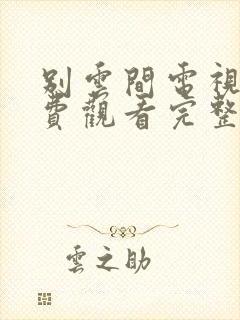 別雲間電視
費觀看完整
雲之助